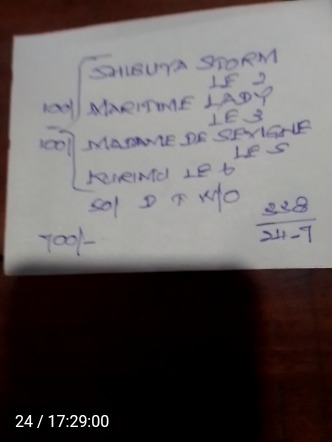 SHIBUYA STORM
LE 2
100/ MARITIME LADY
LE 3
100/ MADAME DE SEVIGNE
LE 5
KURIMU LE 6
50/ D T W/O
338
700/- 24-7
24 / 17:29:00